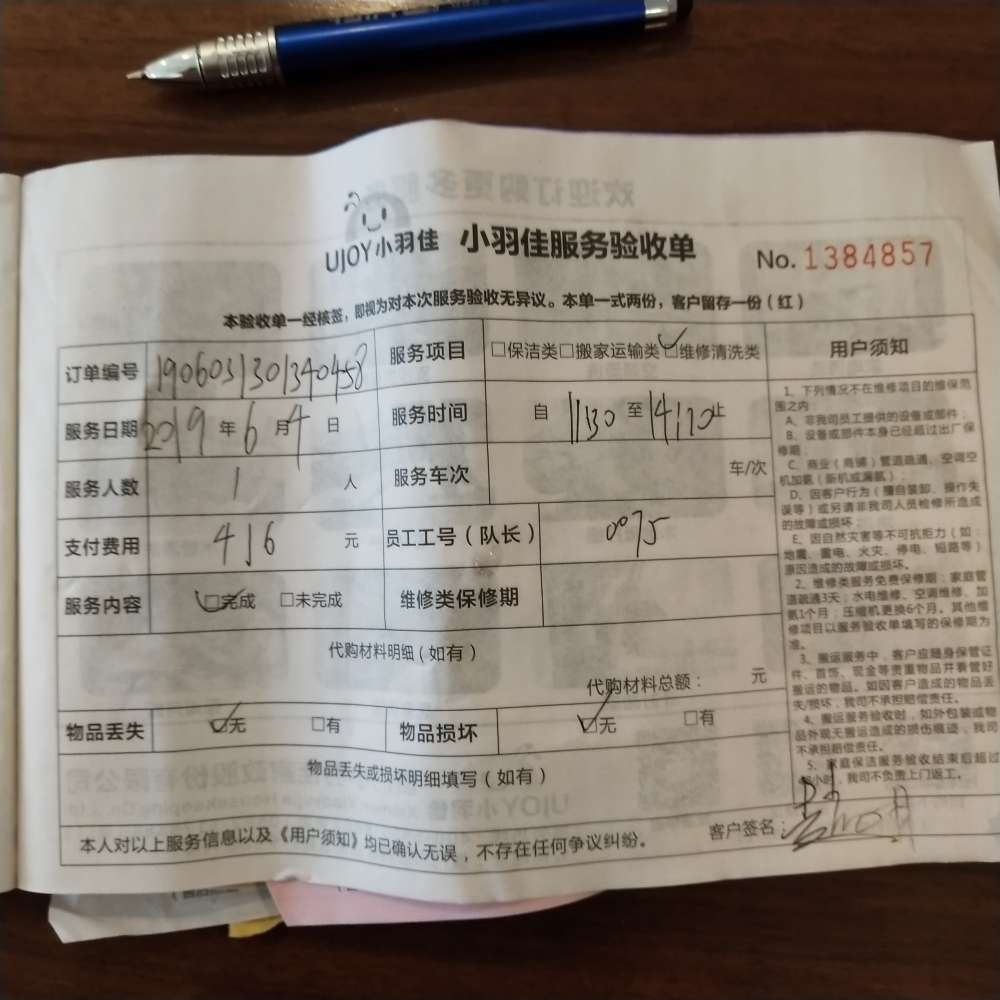 UJOY小羽佳 小羽佳服务验收单 No.1384857
本验收单一经核签，即视为对本次服务验收无异议。本单一式两份，客户留存一份（红）
订单编号 1906031301340458 服务项目 □保洁类□搬家运输类□维修清洗类 用户须知
服务日期 2019年6月4日 服务时间 自11:30至14:10止
服务人数 1人 服务车次 车/次
支付费用 416元 员工工号（队长） 0075
服务内容 □完成 □未完成 维修类保修期
代购材料明细（如有）
代购材料总额： 元
物品丢失 □无 □有 物品损坏 □无 □有
物品丢失或损坏明细填写（如有）
本人对以上服务信息以及《用户须知》均已确认无误，不存在任何争议纠纷。
客户签名：
1、下列情况不在维修项目的维保范
围之内：
A、非我司员工提供的设备或部件；
B、设备或部件本身已经超过出厂保
修期；
C、商业（商铺）管道疏通、空调空
机加氨（新机或漏氨）；
D、因客户行为（擅自装卸、操作失
误等）或另请非我司人员检修所造成
的故障或损坏；
E、因自然灾害等不可抗拒力（如：
地震、雷电、火灾、停电、短路等）
原因造成的故障或损坏。
2、维修类服务免费保修期：家庭管
道疏通3天；水电维修、空调维修、加
氨1个月；压缩机更换6个月。其他维
修项目以服务验收单填写的保修期为
准。
3、搬运服务中，客户应随身保管证
件、首饰、现金等贵重物品并看管好
搬运的物品。如因客户造成的物品丢
失/损坏，我司不承担赔偿责任。
4、搬运服务验收时，如外包装或物
品外观无搬运造成的损伤痕迹，我司
不承担赔偿责任。
5、家庭保洁服务验收结束后超过
小时，我司不负责上门返工。